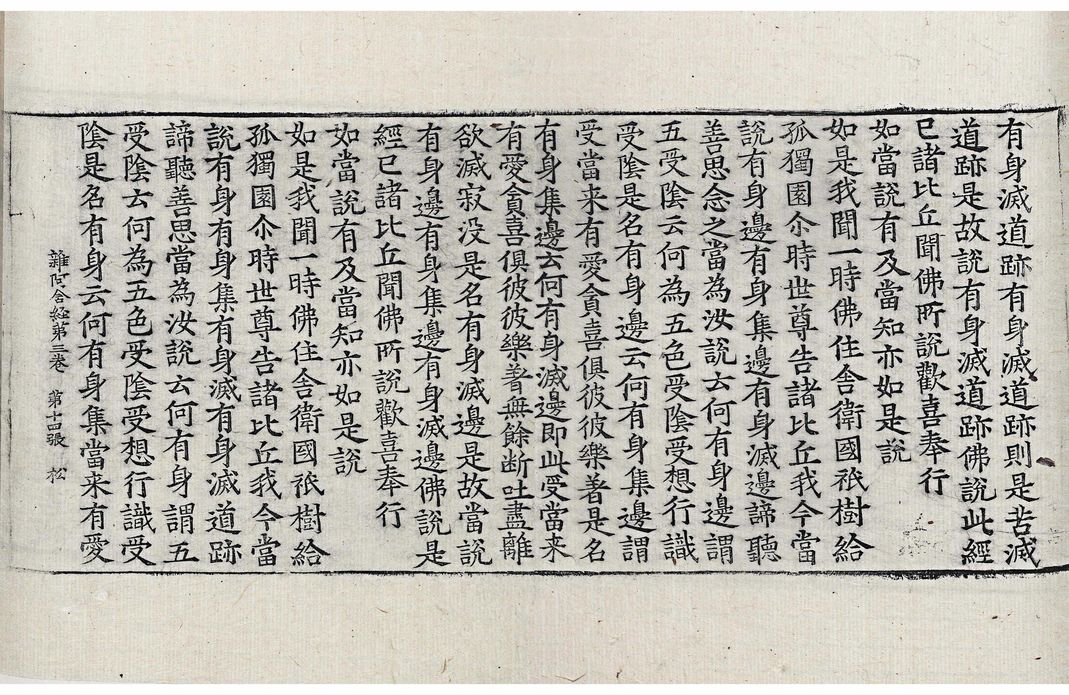 有身滅道跡有身滅道跡則是苦滅
道跡是故說有身滅道跡佛說此經
已諸比丘聞佛所說歡喜奉行
如當說有及當知亦如是說
如是我聞一時佛住舍衛國祇樹給
孤獨園尒時世尊告諸比丘我今當
說有身邊有身集邊有身滅邊諦聽
善思念之當為汝說云何有身邊謂
五受陰云何為五色受陰受想行識
受陰是名有身邊云何有身集邊謂
受當来有愛貪喜俱彼彼樂著是名
有身集邊云何有身滅邊即此受當来
有愛貪喜俱彼彼樂著無餘断吐盡離
欲滅寂没是名有身滅邊是故當說
有身邊有身集邊有身滅邊佛說是
經已諸比丘聞佛所說歡喜奉行
如當說有及當知亦如是說
如是我聞一時佛住舍衛國祇樹給
孤獨園尒時世尊告諸比丘我今當
說有身有身集有身滅有身滅道跡
諦聽善思當為汝說云何有身謂五
受陰云何為五色受陰受想行識受
陰是名有身云何有身集當来有愛
雜阿含経第三卷 第十四張 松